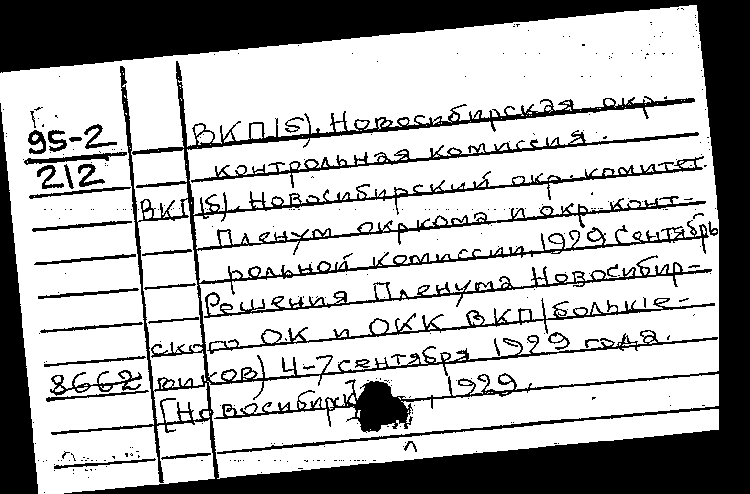 Г.
95-2
212
ВКП(б). Новосибирская окр.
контрольная комиссия.
ВКП(б). Новосибирский окр. комитет
Пленум окркома и окр. конт-
рольной комиссии, 1929 Сентябрь
Решения Пленума Новосибир-
ского ОК и ОКК ВКП/больше-
8662 виков) 4-7 сентября 1929 года.
[Новосибирск] , 1929.